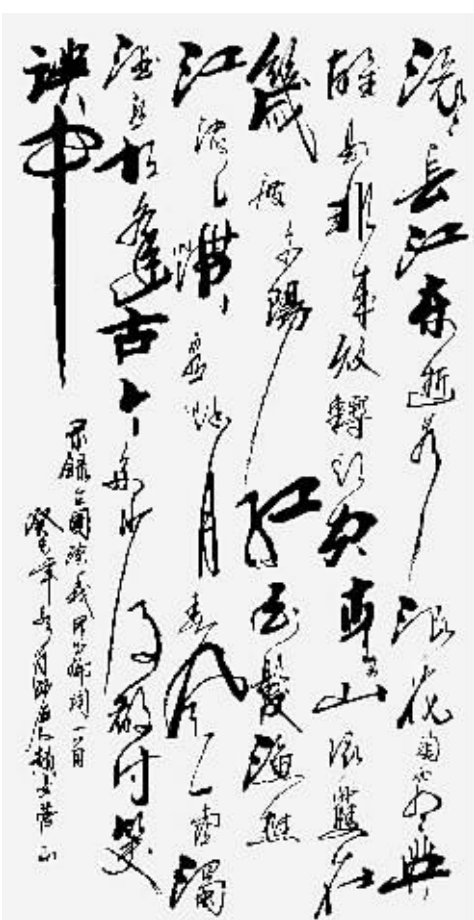 滚々長江東逝水浪花淘盡英
雄是非成敗轉頭空青山依舊在
幾度夕陽紅白髮漁樵
江渚上慣看秋月春風一壺濁
酒喜相逢古今多少事都付笑
談中
錄三國演義詞一首
癸巳年